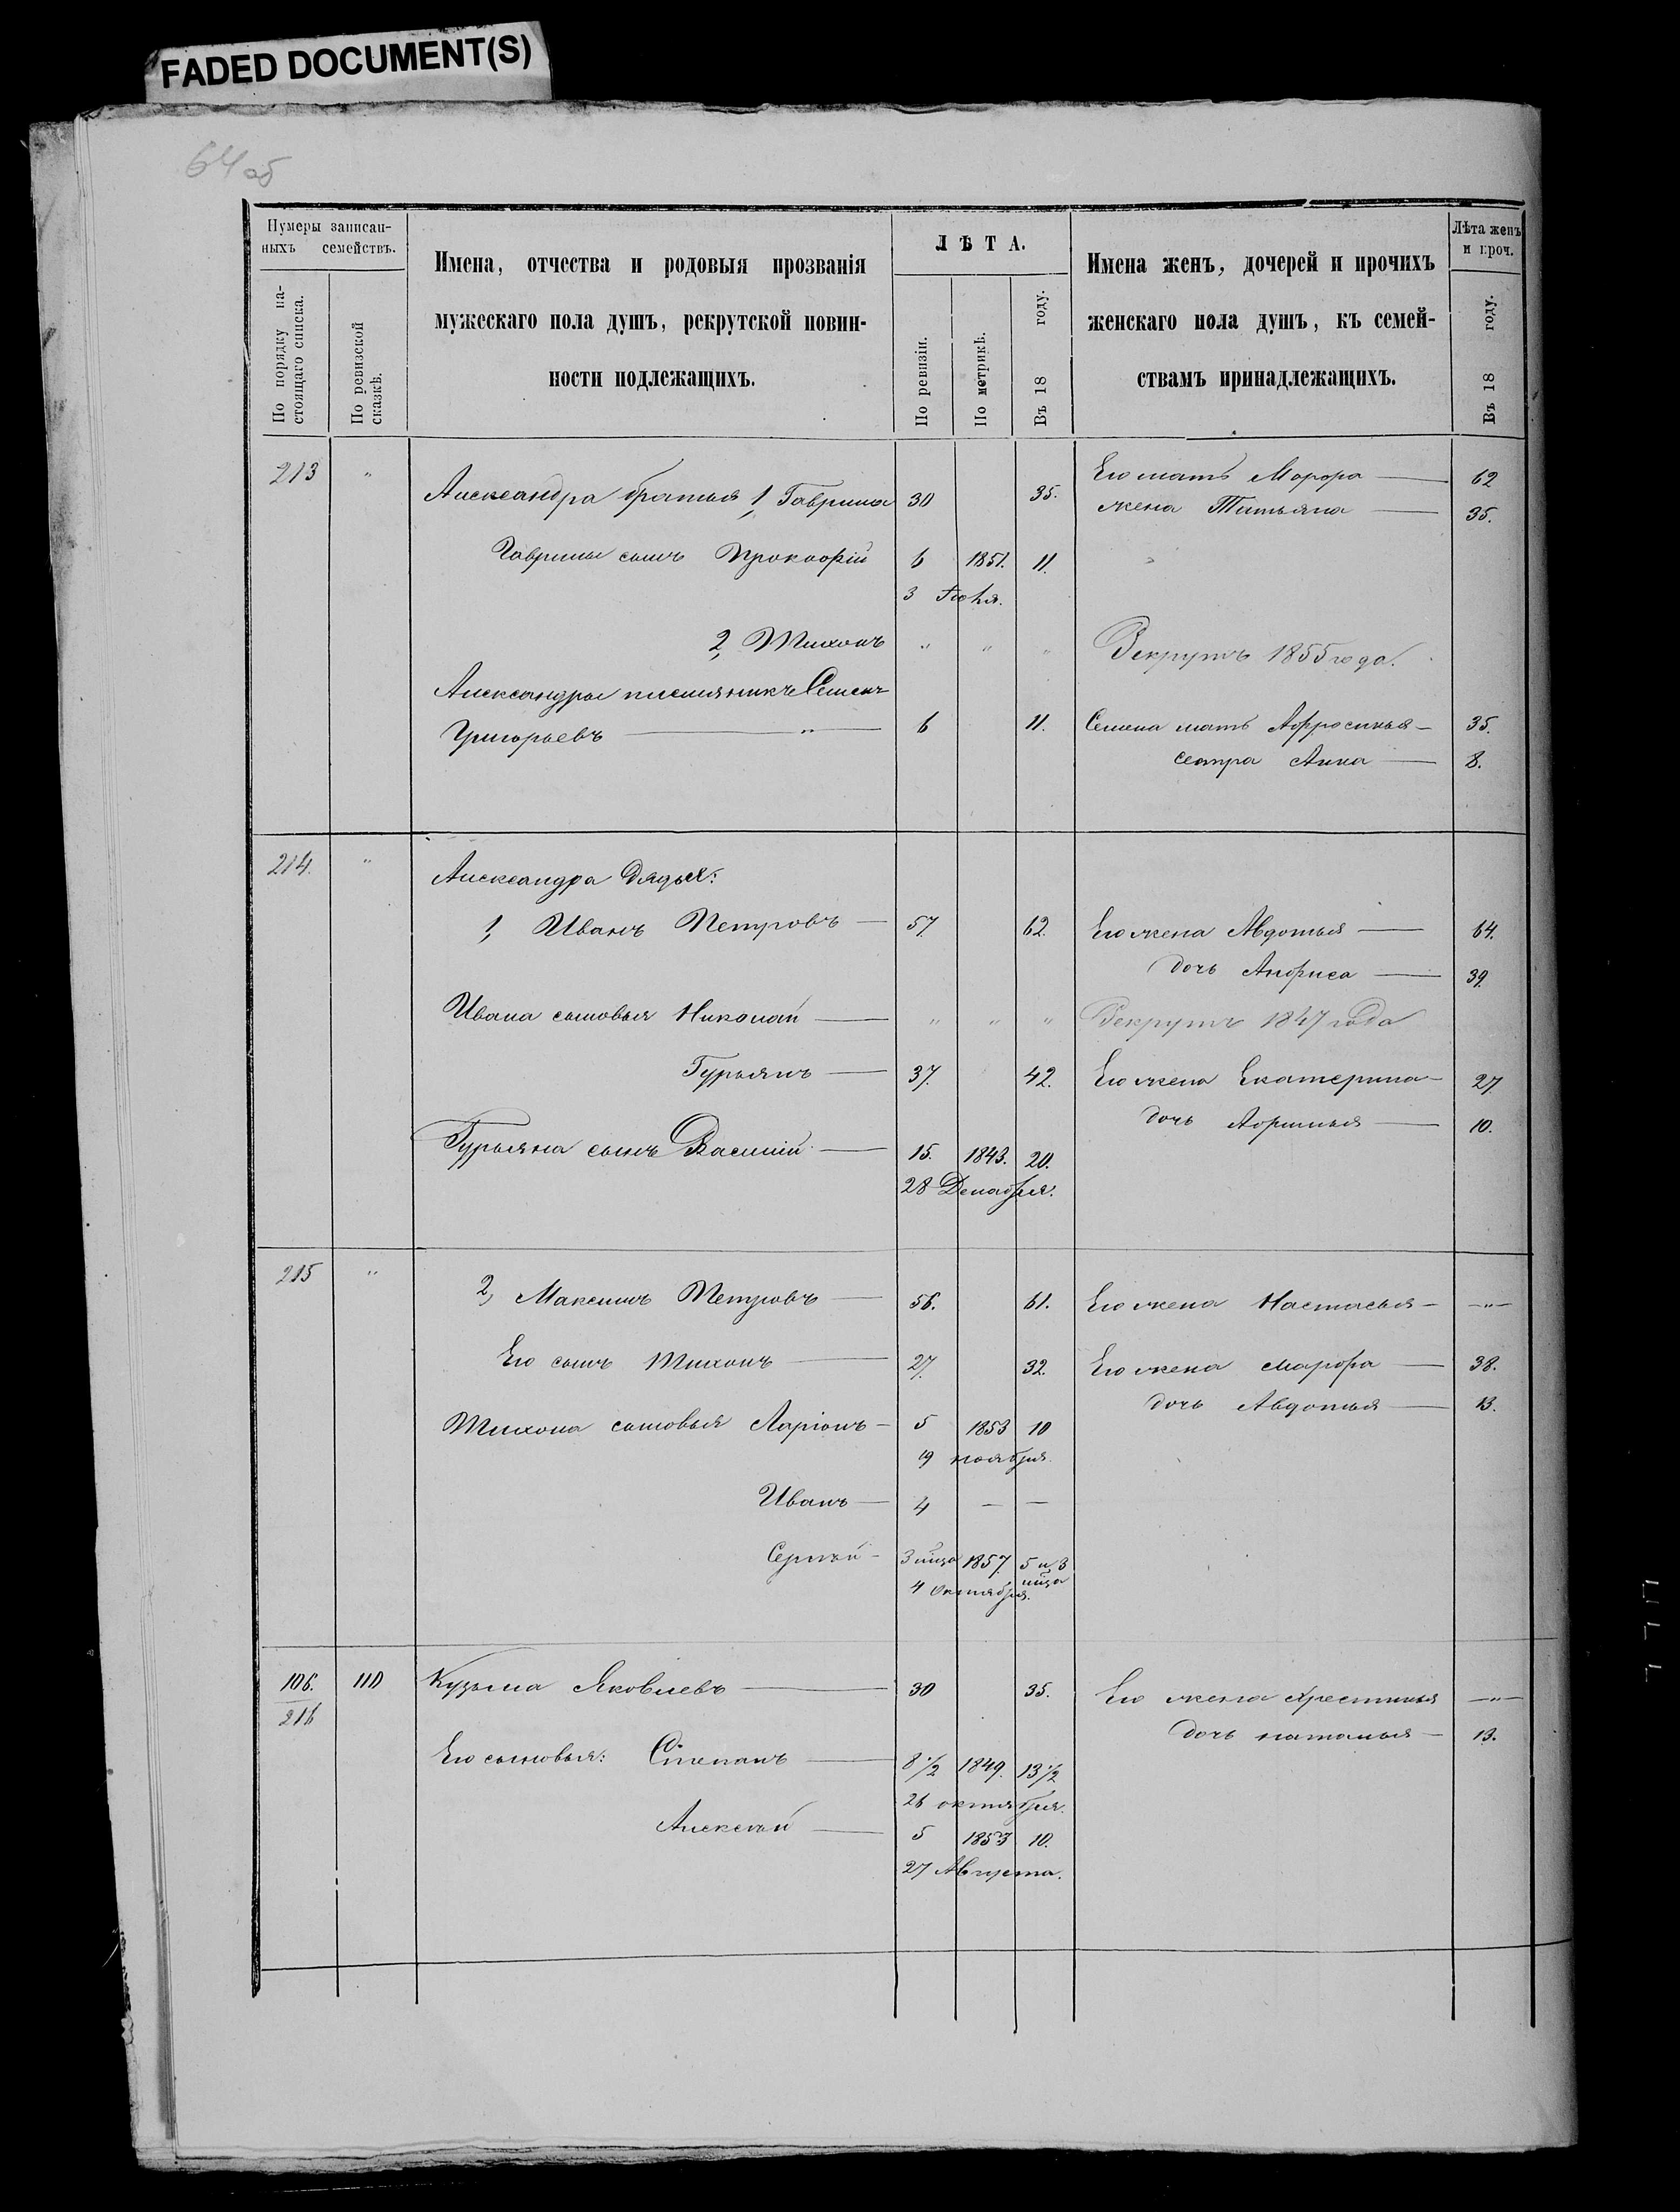 FADED DOCUMENT(S)
64 об
Нумеры записан-
ныхъ семействъ.
По порядку на-
стоящаго списка.
По ревизской
сказкѣ.
Имена, отчества и родовыя прозванія
мужескаго пола душъ, рекрутской повин-
ности подлежащихъ.
ЛѢТА.
По ревизіи.
По метрикѣ.
Въ 18 году.
Имена женъ, дочерей и прочихъ
женскаго пола душъ, къ семей-
ствамъ принадлежащихъ.
Лѣта женъ
и проч.
Въ 18 году.
213 " Александра братья 1, Гаврила 30 35. Его мать Марфа — 62
жена Татьяна — 35.
Гаврилы сынъ Прокофій 6 1851. 11.
3 Іюля.
2, Тихонъ " " " Рекрутъ 1855 года.
Александры племянникъ Семенъ
Григорьевъ — " — 6 11. Семена мать Афросинья — 35.
сестра Анна — 8.
214. " Александра дядья:
1, Иванъ Петровъ — 57. 62. Его жена Авдотья — 64.
дочь Анфиса — 39.
Ивана сыновья Николай — " " " Рекрутъ 1847 года
Гурьянъ — 37. 42. Его жена Екатерина — 27
дочь Афимья — 10.
Гурьяна сынъ Василій — 15. 1843. 20.
28 Декабря.
215 " 2, Максимъ Петровъ — 56. 61. Его жена Настасья — — " —
Его сынъ Тихонъ — 27. 32. Его жена Марфа — 38.
дочь Авдотья — 13.
Тихона сыновья Ларіонъ — 5 1853 10
19 ноября.
Иванъ — 4 — —
Сергѣй — 3 мѣца 1857. 5 и 3
мѣца
4 Октября.
106. 110 Кузьма Яковлевъ — 30 35. Его жена Хрестинья — " —
216
дочь Наталья — 13.
Его сыновья: Степанъ — 8 1/2 1849. 13 1/2
26 октября.
Алексѣй — 5 1853 10.
27 Августа.